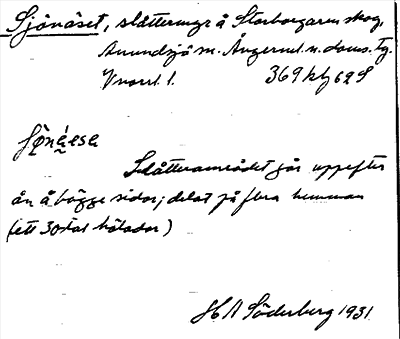 Sjönäset, slåtterängr å Storborgaren skog,
Anundsjö sn. Ångerml. n. doms. tg.
Vnorrl. l. 369 kl 62 S
Slåtterområdet går uppefter
ån å bägge sidor; delat på flera hemman
(ett 30tal hölador)
H A Söderberg 1931